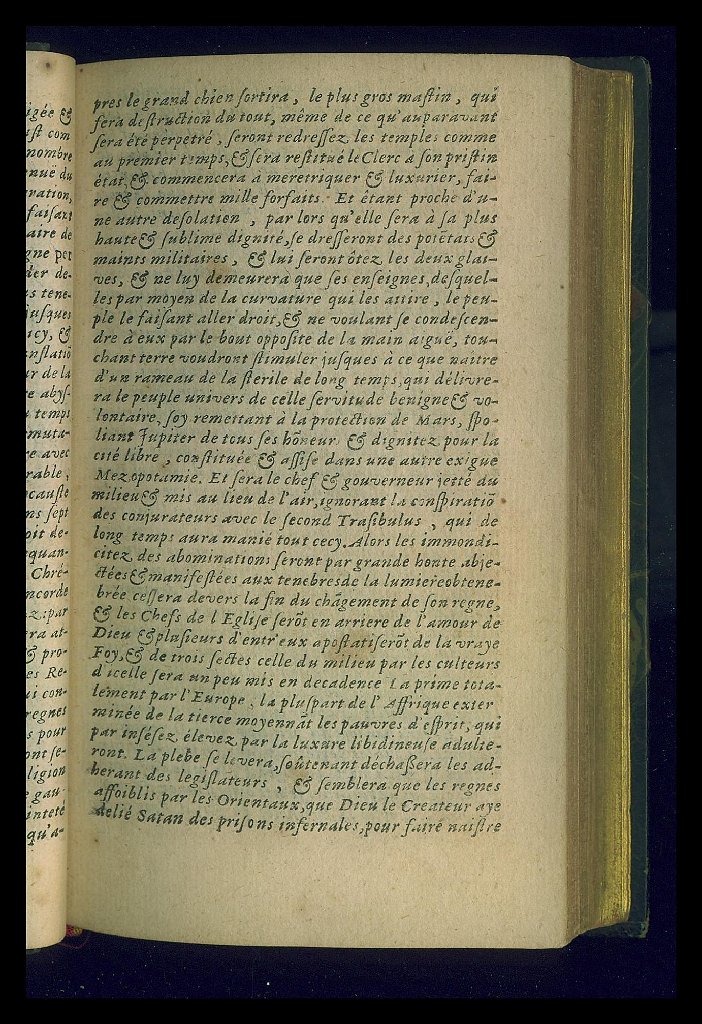 igée &
uſt com
nombre
nuë du
ration,
faiſant
aire de
gne pet
der de-
s tene-
juſques
rcy, &
nſtatiõ
ur de la
re abyſ-
temps
muta-
re avec
rable,
cauſte
ns ſept
oit de-
quan-
Chré-
ncorde
z: par
ra at-
& pro-
es Re-
ui con-
regnes
s pour
ont ſe-
ligion
gau-
inteté
qu'a-
pres le grand chien ſortira, le plus gros maſtin, qui
ſera deſtruction du tout, même de ce qu'auparavant
ſera été perpetré, ſeront redreſſez les temples comme
au premier temps, & ſera reſtitué le Clerc à ſon priſtin
état, & commencera à meretriquer & luxurier, fai-
re & commettre mille forfaits. Et étant proche d'u-
ne autre deſolatien, par lors qu'elle ſera à ſa plus
haute & ſublime dignité, ſe dreſſeront des potẽtats &
maints militaires, & lui ſeront ôtez les deux glai-
ves, & ne luy demeurera que ſes enſeignes, deſquel-
les par moyen de la curvature qui les attire, le peu-
ple le faiſant aller droit, & ne voulant ſe condeſcen-
dre à eux par le bout oppoſite de la main aiguë, tou-
chant terre voudront ſtimuler juſques à ce que naitre
d'un rameau de la ſterile de long temps, qui délivre-
ra le peuple univers de celle ſervitude benigne & vo-
lontaire, ſoy remettant à la protection de Mars, ſpo-
liant Jupiter de tous ſes hõneur & dignitez pour la
cité libre, conſtituée & aſſiſe dans une autre exigue
Mezopotamie. Et ſera le chef & gouverneur jetté du
milieu & mis au lieu de l'air, ignorant la conſpiratiõ
des conjurateurs avec le ſecond Traſibulus, qui de
long temps aura manié tout cecy. Alors les immondi-
citez des abominations ſeront par grande honte abje-
ctées & manifeſtées aux tenebres de la lumiere obtene-
brée ceſſera devers la fin du chãgement de ſon regne,
& les Chefs de l'Egliſe ſerõt en arriere de l'amour de
Dieu & pluſieurs d'entr'eux apoſtatiſerõt de la vraye
Foy, & de trois ſectes celle du milieu par les culteurs
d'icelle ſera un peu mis en decadence La prime tota-
lement par l'Europe, la pluſpart de l'Affrique exter
minée de la tierce moyennãt les pauvres d'eſprit, qui
par inſéſez élevez par la luxure libidineuſe adulte-
ront. La plebe ſe levera, ſoûtenant déchaſſera les ad-
herant des legiſlateurs, & ſemblera que les regnes
affoiblis par les Orientaux, que Dieu le Createur aye
délié Satan des priſons infernales, pour faire naiſtre